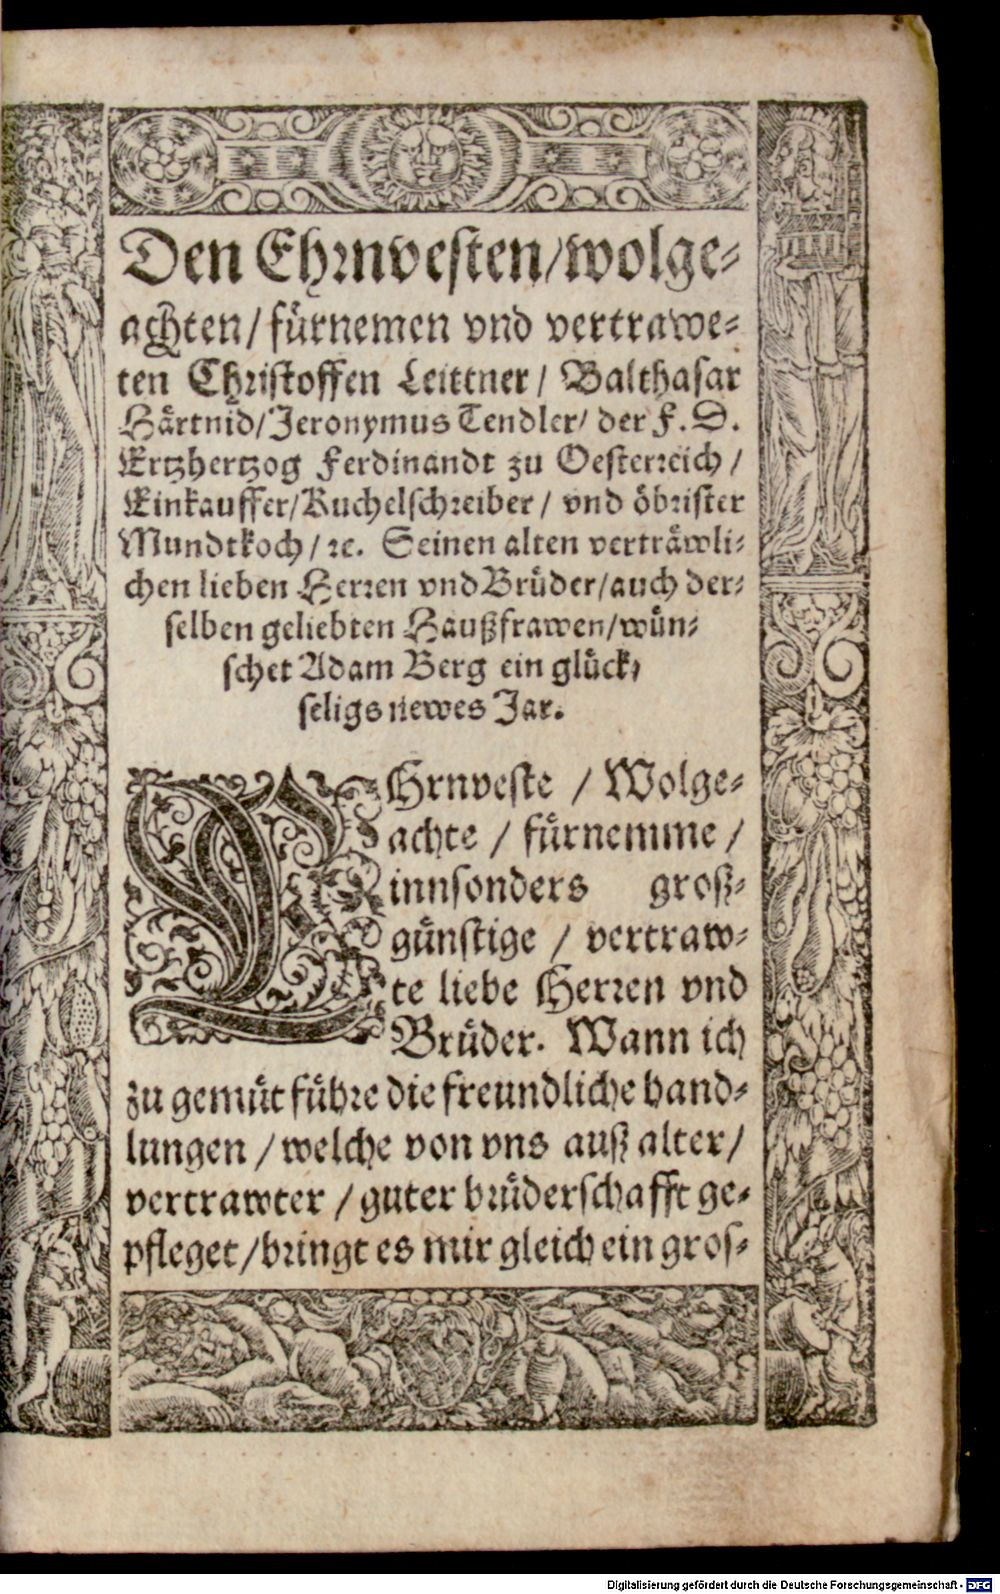 Den Ehrnvesten/wolge-
achten/ fürnemen vnd vertrawe-
ten Christoffen Leittner/ Balthasar
Härtnid/Jeronymus Tendler/ der F. D.
Ertzhertzog Ferdinandt zu Oesterreich/
Einkauffer/Kuchelschreiber/ vnd öbrister
Mundtkoch/ ꝛc. Seinen alten verträwli-
chen lieben Herren vnd Brüder/auch der-
selben geliebten Haußfrawen/wün-
schet Adam Berg ein glück-
seligs newes Jar.
EHrnveste / Wolge-
achte / fürnemme /
innsonders groß-
günstige / vertraw-
te liebe Herren vnd
Brüder. Wann ich
zu gemüt führe die freundliche hand-
lungen /welche von vns auß alter/
vertrawter / guter brüderschafft ge-
pfleget/bringt es mir gleich ein gros-
Digitalisierung gefördert durch die Deutsche Forschungsgemeinschaft - DFG